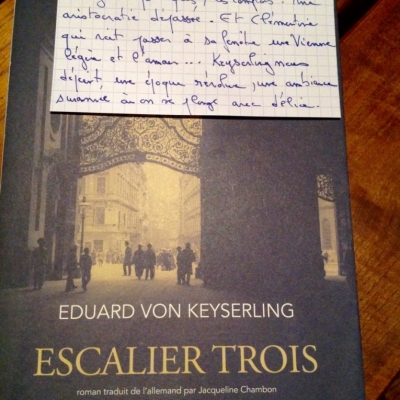 aristocratie dépassée. Et Clémentine
qui voit passer à sa fenêtre une Vienne
légère et l'amour... Keyserling nous
dépeint une époque révolue, une ambiance
surannée où on se plonge avec délice.
EDUARD VON KEYSERLING
ESCALIER TROIS
roman traduit de l'allemand par Jacqueline Chambon